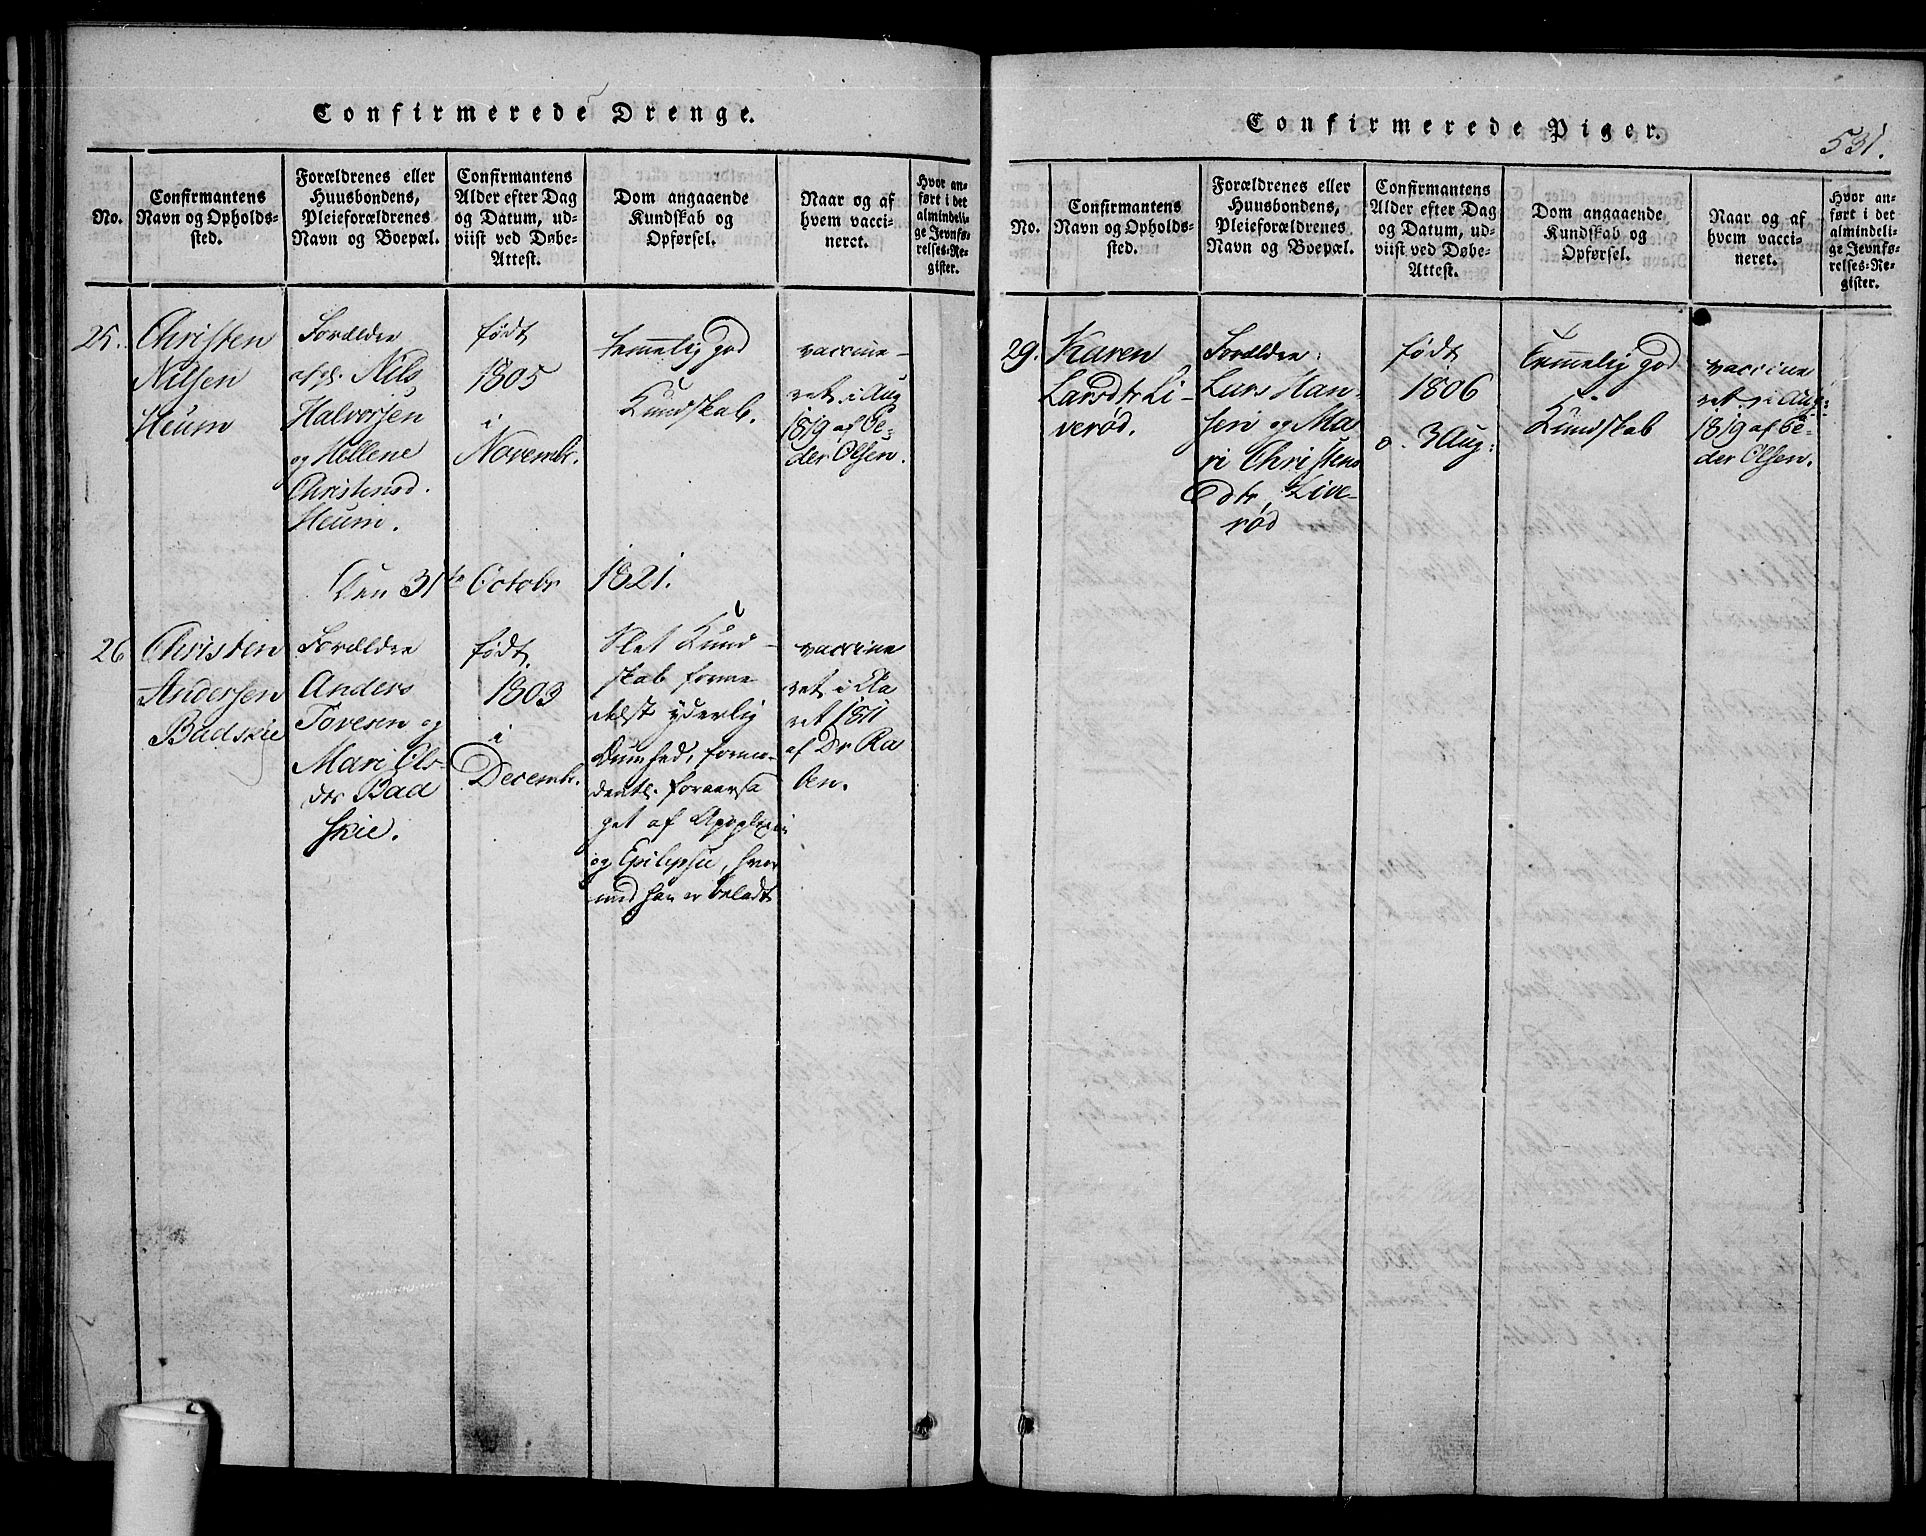 Confirmerede Drenge.
No.
Confirmantens
Navn og Opholds-
sted.
Forældrenes eller
Huusbondens,
Pleieforældrenes
Navn og Boepæl.
Confirmantens
Alder efter Dag
og Datum, ud-
viist ved Døbe-
Attest.
Dom angaaende
Kundskab og
Opførsel.
Naar og af
hvem vacci-
neret.
Hvor an-
ført i det
almindeli-
ge Jevnfø-
relses-Re-
gister.
25.
Christen
Nilsen
Heum
Forældre
Nils
Halvorsen
og Hellene
Christensd.
Heum.
født
1805
i
Novembr.
temmelig god
Kundskab.
vaccine-
ret i Aug
1819 af Pe-
der Olsen.
Den 31te Octobr 1821.
26
Christen
Andersen
Badskie
Forældre
Anders
Tovesen og
Mari Ols-
dtr Bad
skie.
født
1803
i
Decembr.
Slet Kund-
skab forme
delst yderlig
Dumhed, forme-
dentl. foraarsa
get af Apoplexie
og Epilepsie, hvor
med han er beladt
vaccine
ret i
ret 1811
af Dr Ra
ben.
Confirmerede Piger.
531.
No.
Confirmantens
Navn og Opholds-
sted.
Forældrenes eller
Huusbondens,
Pleieforældrenes
Navn og Boepæl.
Confirmantens
Alder efter Dag
og Datum, ud-
viist ved Døbe-
Attest.
Dom angaaende
Kundskab og
Opførsel.
Naar og af
hvem vacci-
neret.
Hvor an-
ført i det
almindeli-
ge Jevnfø-
relses-Re-
gister.
29.
Karen
Larsdtr Li-
verød.
Forældre:
Lars Han-
sen og Ma
ri Christens
dtr, Live-
rød
født
1806
d. 3 Aug:
Temmelig god
Kundskab
vaccine
ret i Aug:
1819 af Pe-
der Olsen.